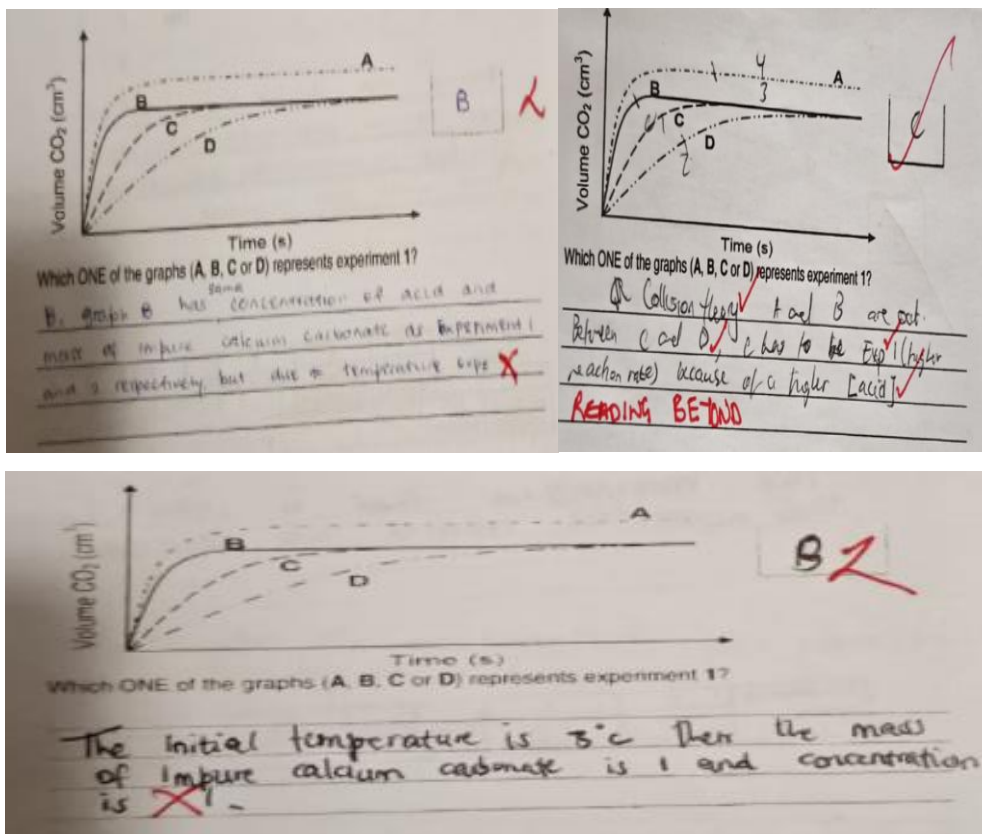 A
B
C
D
Volume CO₂ (cm³)
Time (s)
B
Which ONE of the graphs (A, B, C or D) represents experiment 1?
same
B. graph B has concentration of acid and
mass of impure calcium carbonate as Experiment 1
and 3 respectively, but due to temperature
A
B
C
D
4
3
1
2
Volume CO₂ (cm³)
Time (s)
C
Which ONE of the graphs (A, B, C or D) represents experiment 1?
Collision theory A and B are out.
Between C and D, C has to be Exp 1 (higher
reaction rate) because of a higher [acid]
READING BEYOND
A
B
C
D
Volume CO₂ (cm³)
Time (s)
B
Which ONE of the graphs (A, B, C or D) represents experiment 1?
The initial temperature is 3°c then the mass
of impure calcium carbonate is 1 and concentration
is 1.